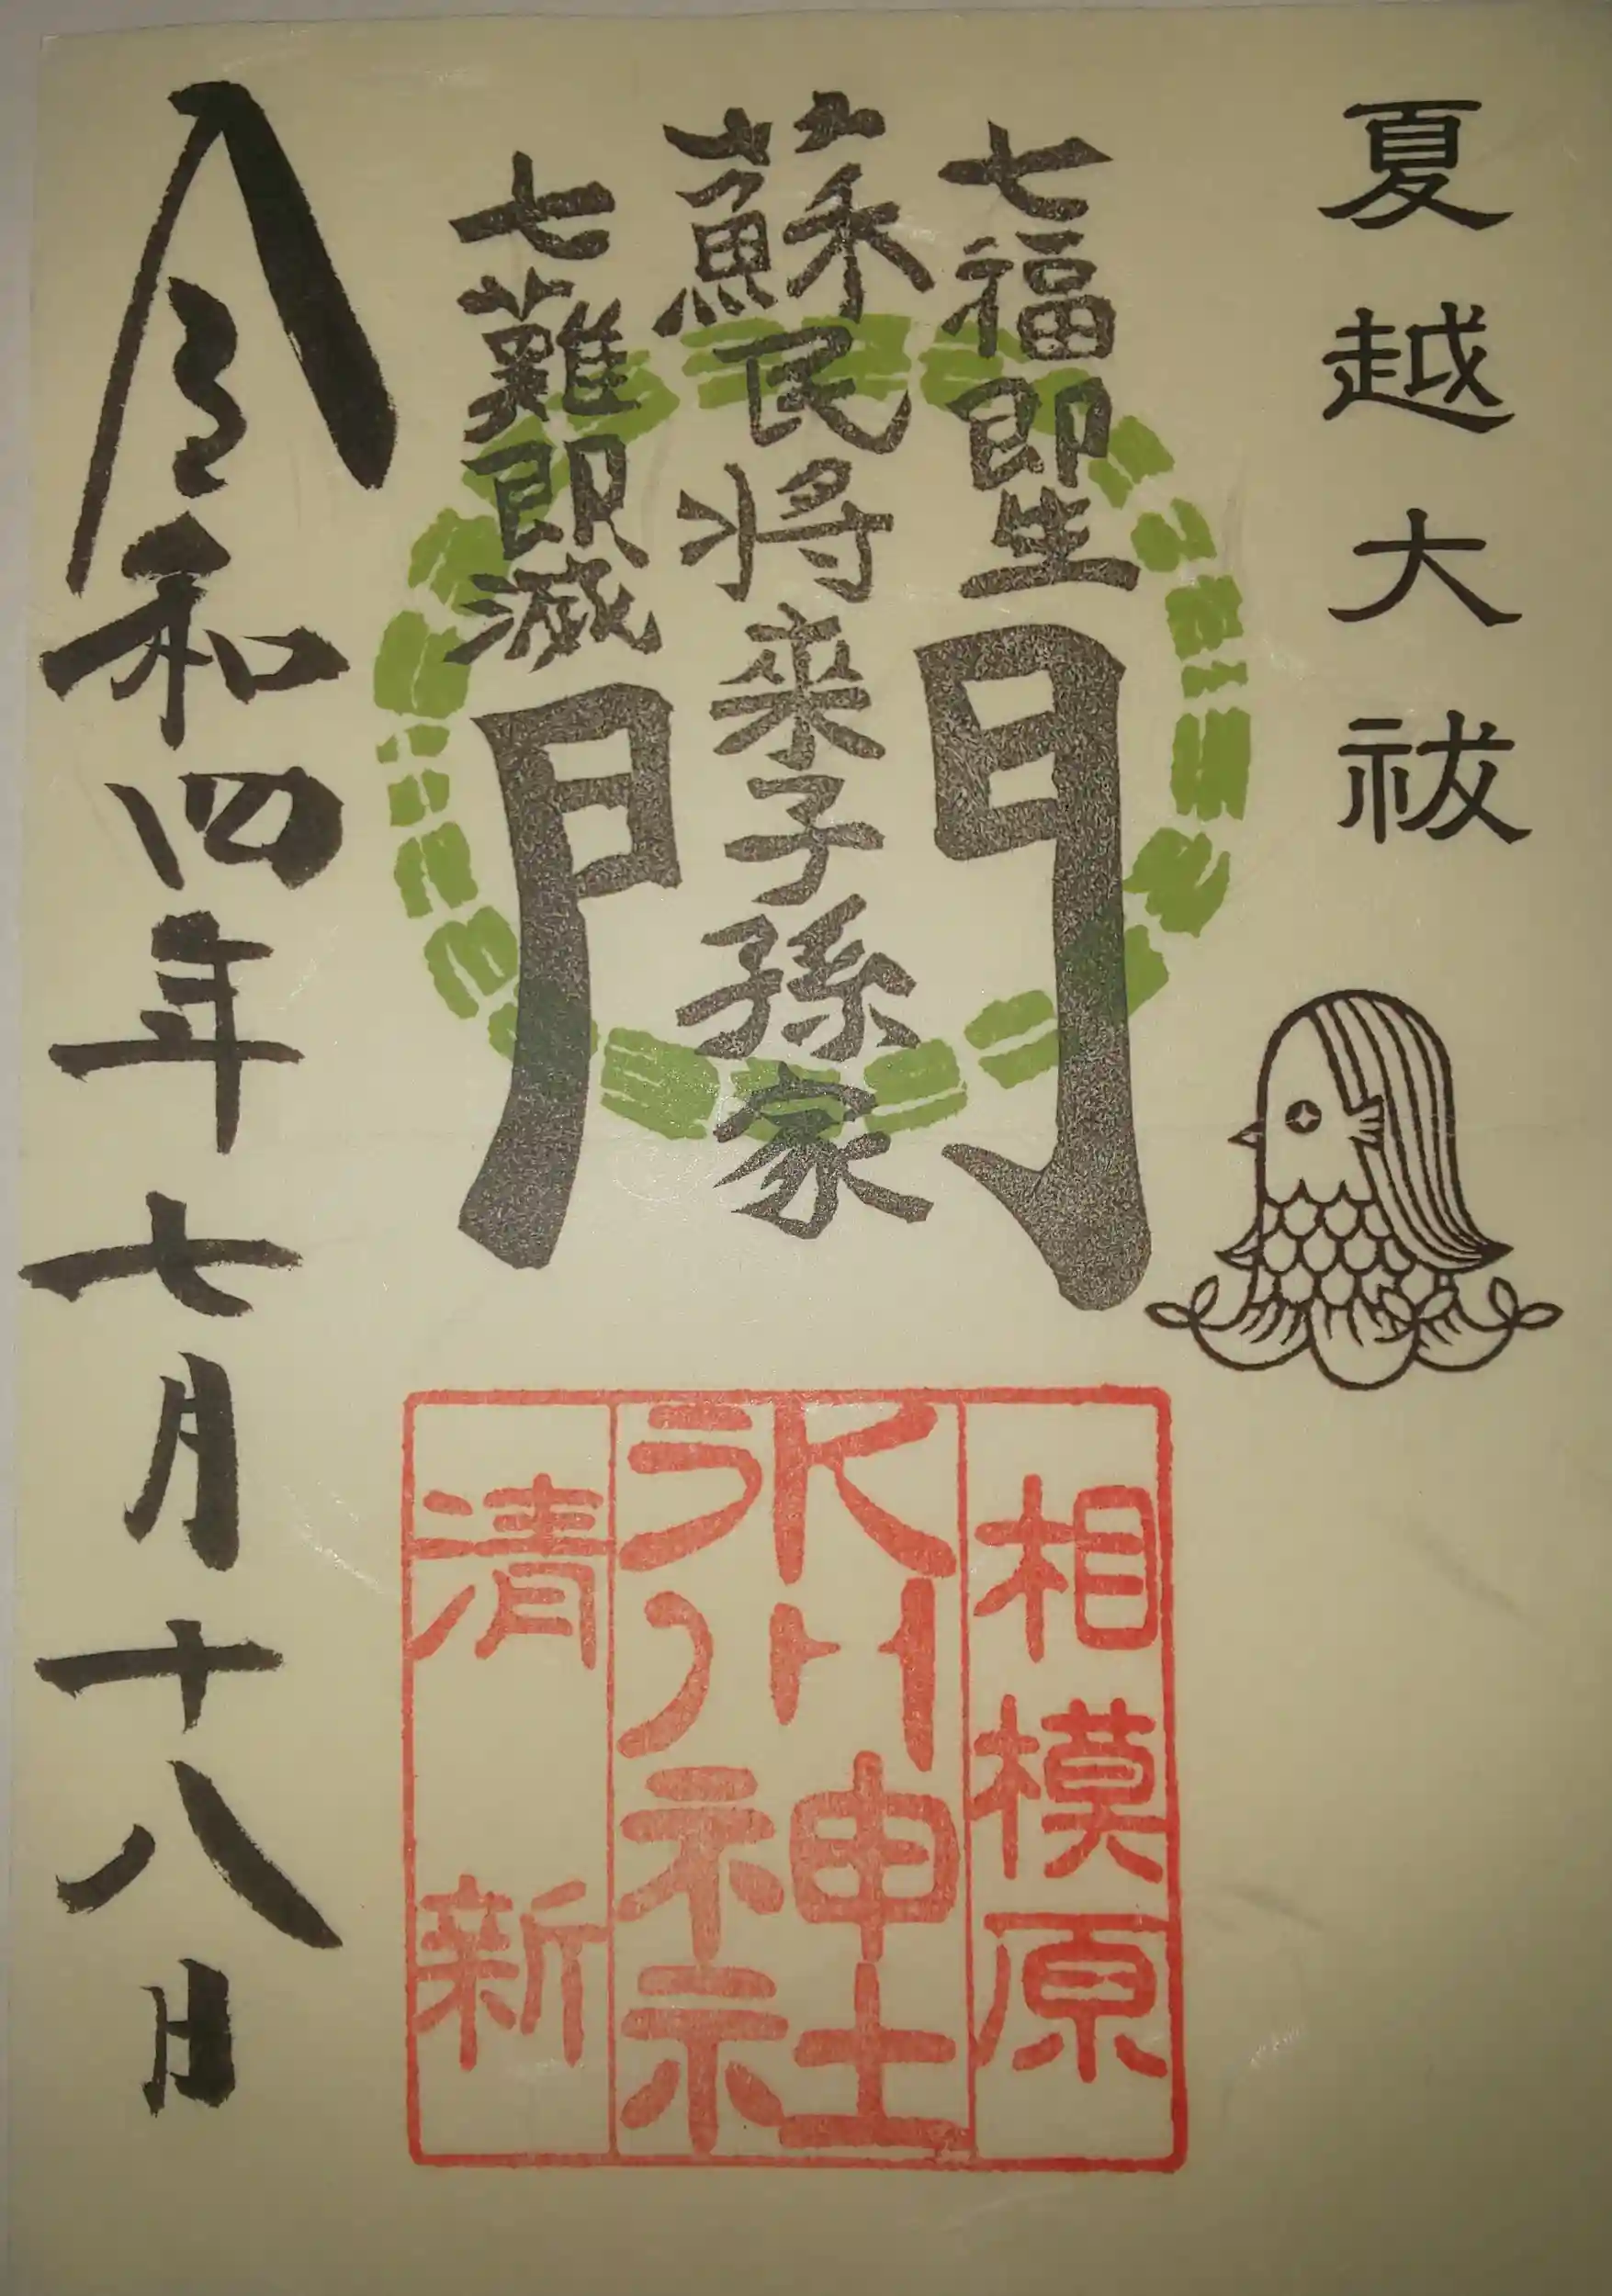 夏越大祓
七福即生
蘇民将来子孫家
門
七難即滅
令和四年七月十八日
相模原
氷川神社
清新